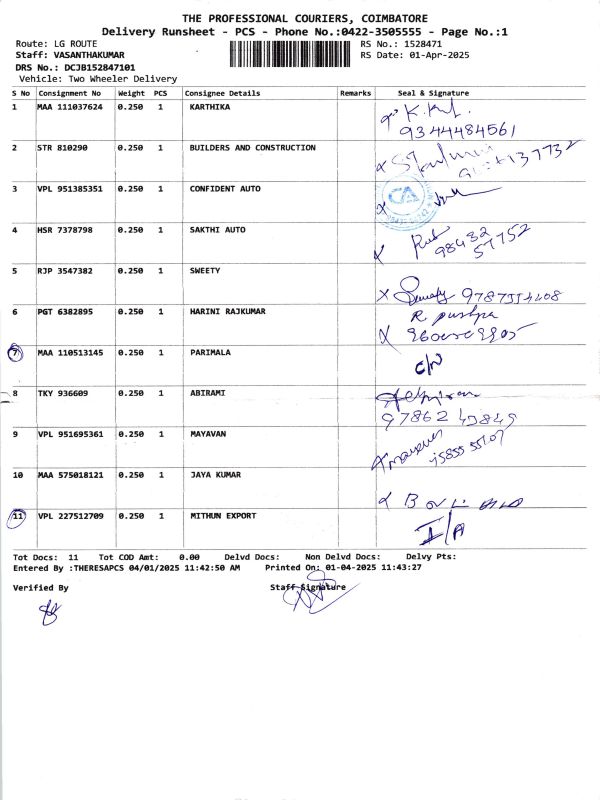 THE PROFESSIONAL COURIERS, COIMBATORE
Delivery Runsheet - PCS - Phone No.:0422-3505555 - Page No.:1
Route: LG ROUTE RS No.: 1528471
Staff: VASANTHAKUMAR RS Date: 01-Apr-2025
DRS No.: DCJB152847101
Vehicle: Two Wheeler Delivery
S No Consignment No Weight PCS Consignee Details Remarks Seal & Signature
1 MAA 111037624 0.250 1 KARTHIKA
9344484561
2 STR 810290 0.250 1 BUILDERS AND CONSTRUCTION
3 VPL 951385351 0.250 1 CONFIDENT AUTO
CA
4 HSR 7378798 0.250 1 SAKTHI AUTO
98432
57752
5 RJP 3547382 0.250 1 SWEETY
6 PGT 6382895 0.250 1 HARINI RAJKUMAR R pushpa
7 MAA 110513145 0.250 1 PARIMALA
8 TKY 936609 0.250 1 ABIRAMI
97862 45849
9 VPL 951695361 0.250 1 MAYAVAN
10 MAA 575018121 0.250 1 JAYA KUMAR
11 VPL 227512709 0.250 1 MITHUN EXPORT I/A
Tot Docs: 11 Tot COD Amt: 0.00 Delvd Docs: Non Delvd Docs: Delvy Pts:
Entered By :THERESAPCS 04/01/2025 11:42:50 AM Printed On: 01-04-2025 11:43:27
Verified By Staff Signature